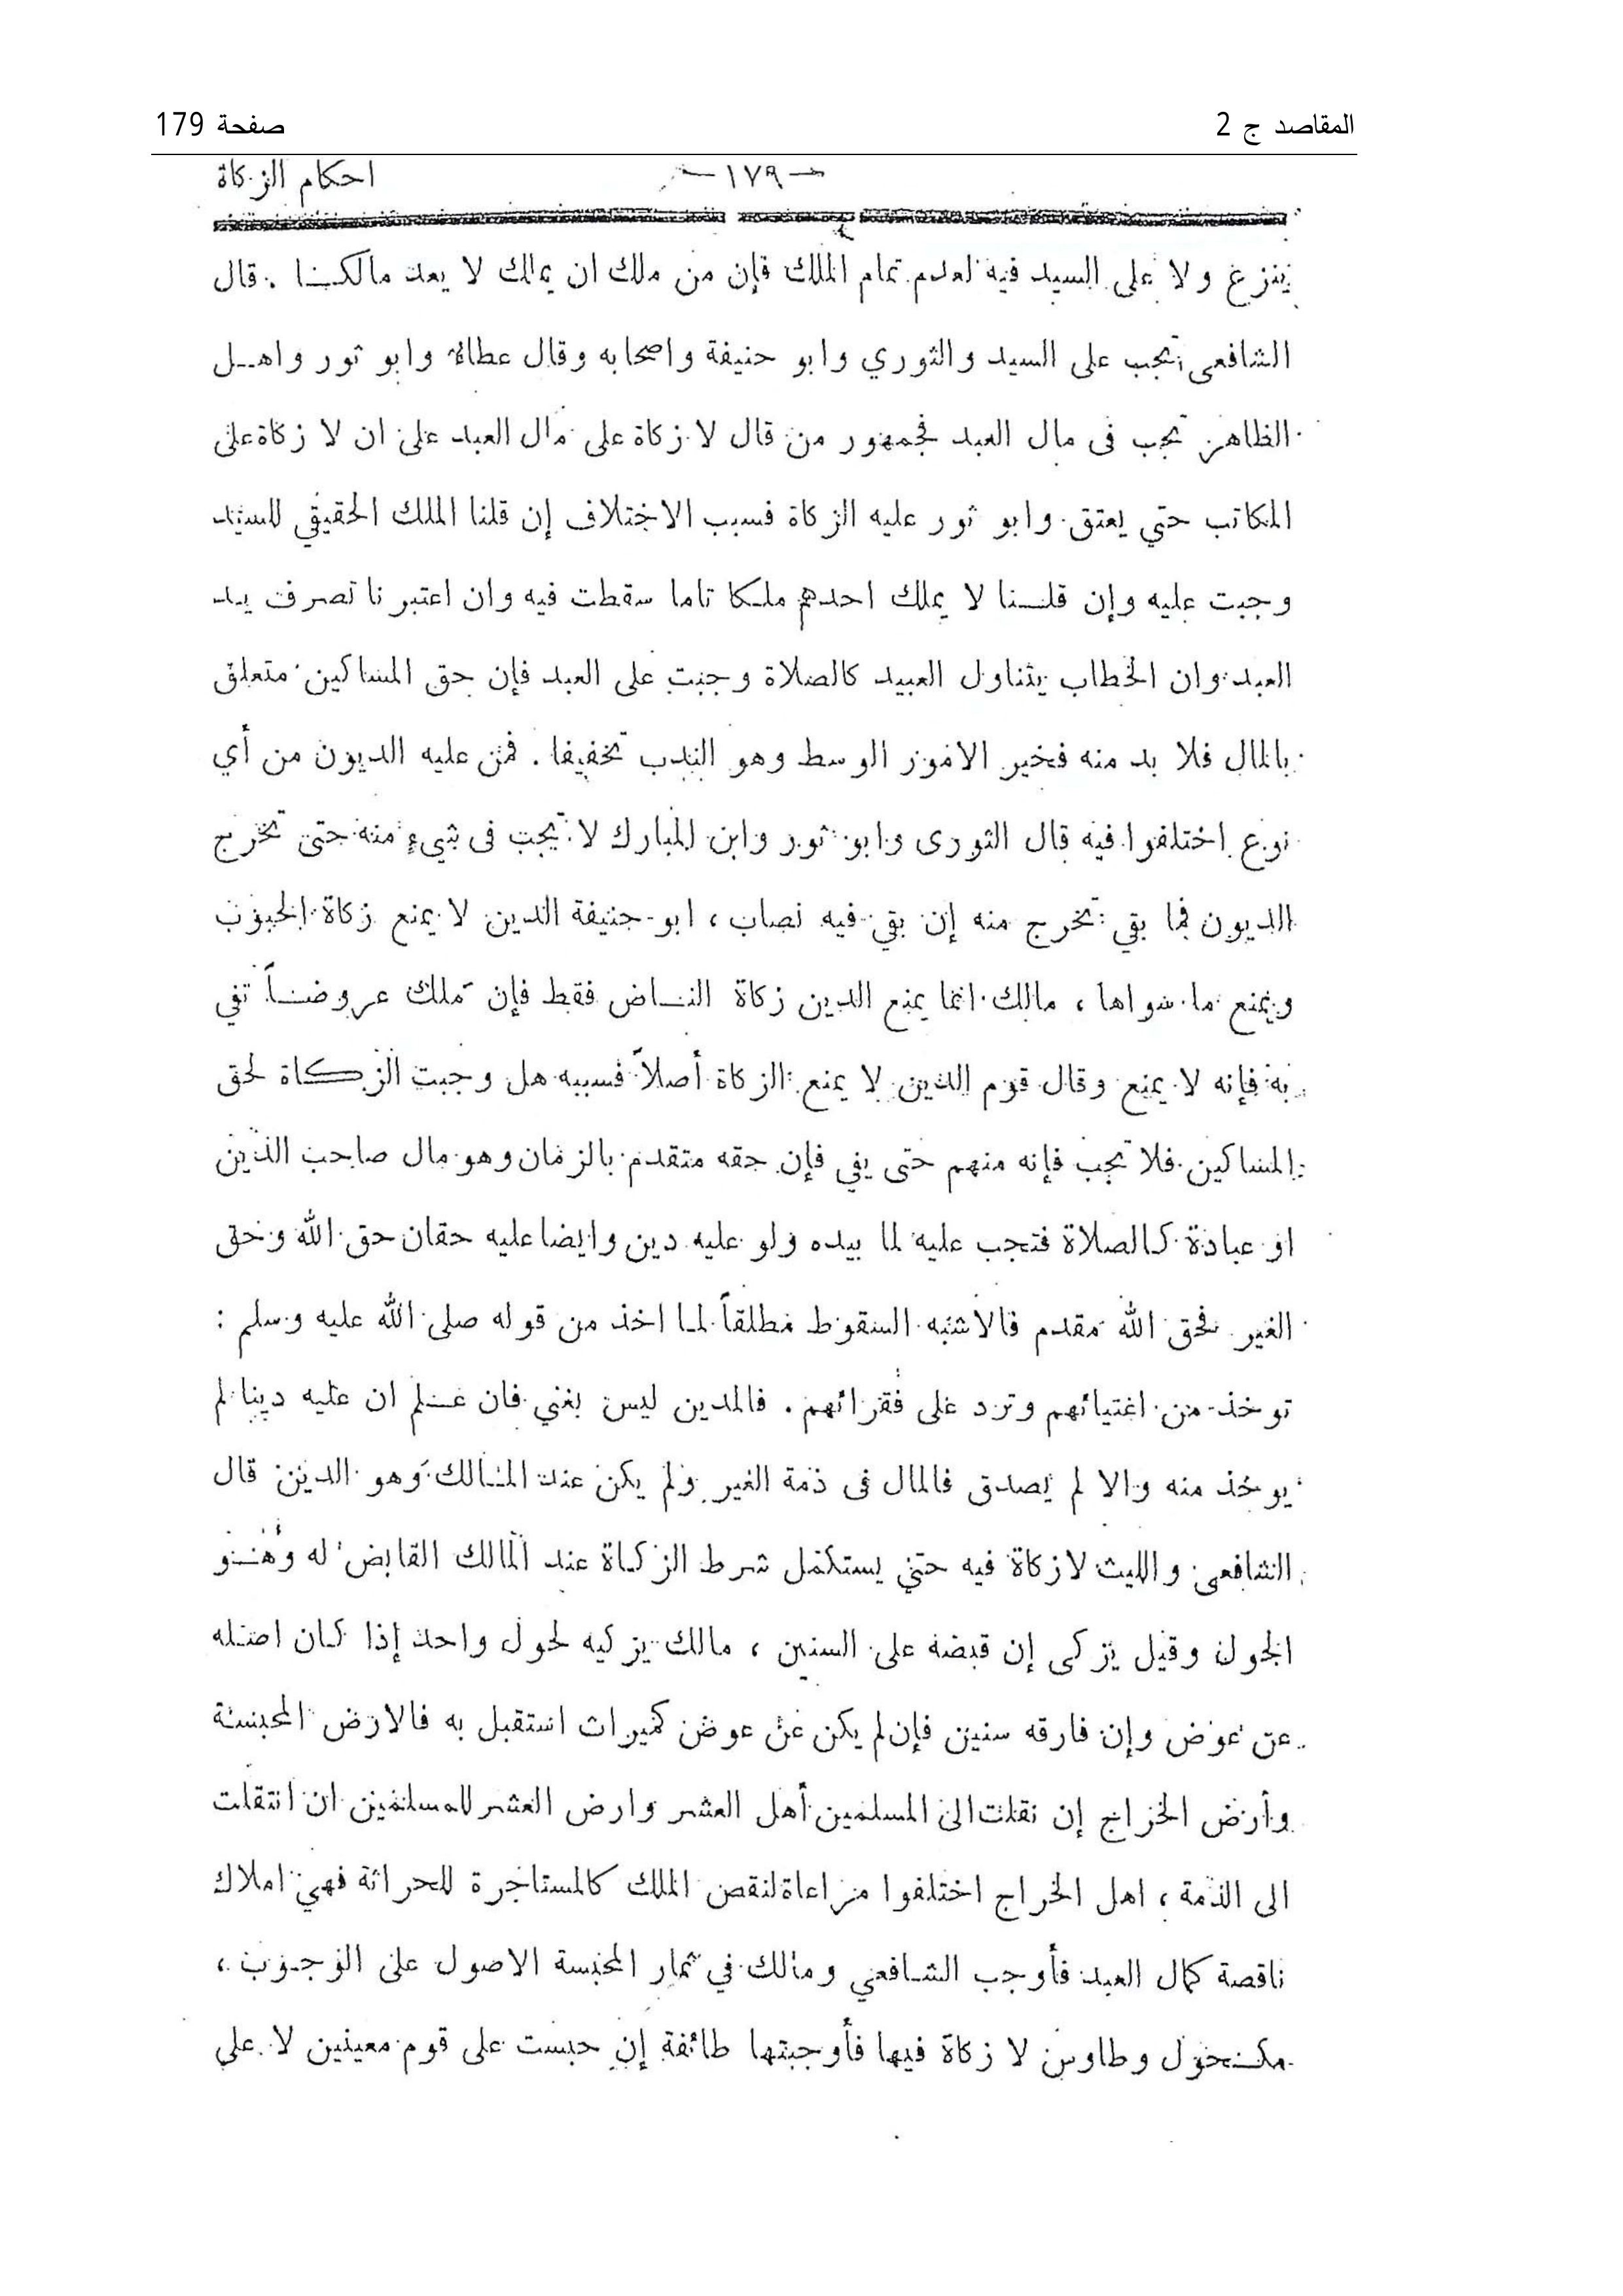 المقاصد ج 2
صفحة 179
احكام الزكاة
— ١٧٩ —
ينزع ولا على السيد فيه لعدم تمام الملك فإن من ملك ان يملك لا يعد مالكــا . قال
الشافعي تجب على السيد والثوري وابو حنيفة واصحابه وقال عطاء وابو ثور واهــل
الظاهر تجب فى مال العبد فجمهور من قال لا زكاة على مال العبد على ان لا زكاة على
المكاتب حتي يعتق وابو ثور عليه الزكاة فسبب الاختلاف إن قلنا الملك الحقيقي للسيد
وجبت عليه وإن قلــنا لا يملك احدهم ملــكا تاما سقطت فيه وان اعتبرنا تصرف يــد
العبد وان الخطاب يتناول العبيد كالصلاة وجبت على العبد فإن حق المساكين متعلق
بالمال فلا بد منه فخير الامور الوسط وهو الندب تخفيفا . فمن عليه الديون من أي
نوع اختلفوا فيه قال الثورى وابو ثور وابن المبارك لا تجب فى شيء منه حتى تخرج
الديون فما بقي تخرج منه إن بقي فيه نصاب ، ابو حنيفة الدين لا يمنع زكاة الحبوب
ويمنع ما سواها ، مالك انما يمنع الدين زكاة النــاض فقط فإن ملك عروضــاً تفي
به فإنه لا يمنع وقال قوم الدين لا يمنع الزكاة أصلاً فسببه هل وجبت الزكــاة لحق
المساكين فلا تجب فإنه منهم حتى يفي فإن حقه متقدم بالزمان وهو مال صاحب الدين
او عبادة كالصلاة فتجب عليه لما بيده ولو عليه دين وايضا عليه حقان حق الله وحق
الغير فحق الله مقدم فالاشبه السقوط مطلقاً لمـا اخذ من قوله صلى الله عليه وسلم :
توخذ من اغتيائهم وترد على فقرائهم . فالمدين ليس بغني فان عــلم ان عليه دينا لم
يوخذ منه والا لم يصدق فالمال فى ذمة الغير ولم يكن عند المــالك وهو الدين قال
الشافعي والليث لا زكاة فيه حتي يستكمل شرط الزكاة عند المالك القابض له وهــو
الحول وقيل يزكى إن قبضه على السنين ، مالك يزكيه لحول واحد إذا كـان اصــله
عن عوض وإن فارقه سنين فإن لم يكن عن عوض كميراث استقبل به فالارض المحبسة
وأرض الخراج إن نقلت الى المسلمين أهل العشر وارض العشر للمسلمين ان انتقلت
الى الذمة ، اهل الخراج اختلفوا مراعاة لنقص الملك كالمستاجرة للحراثة فهي املاك
ناقصة كمال العبد فأوجب الشــافعي ومالك في ثمار المحبسة الاصول على الوجوب ،
مكــحول وطاوس لا زكاة فيها فأوجبتها طائفة إن حبست على قوم معينين لا علي